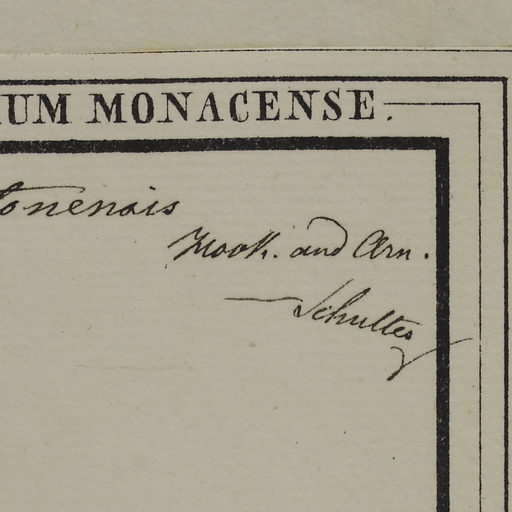 IUM MONACENSE.
tonensis
Hook. and Arn.
— Schultes